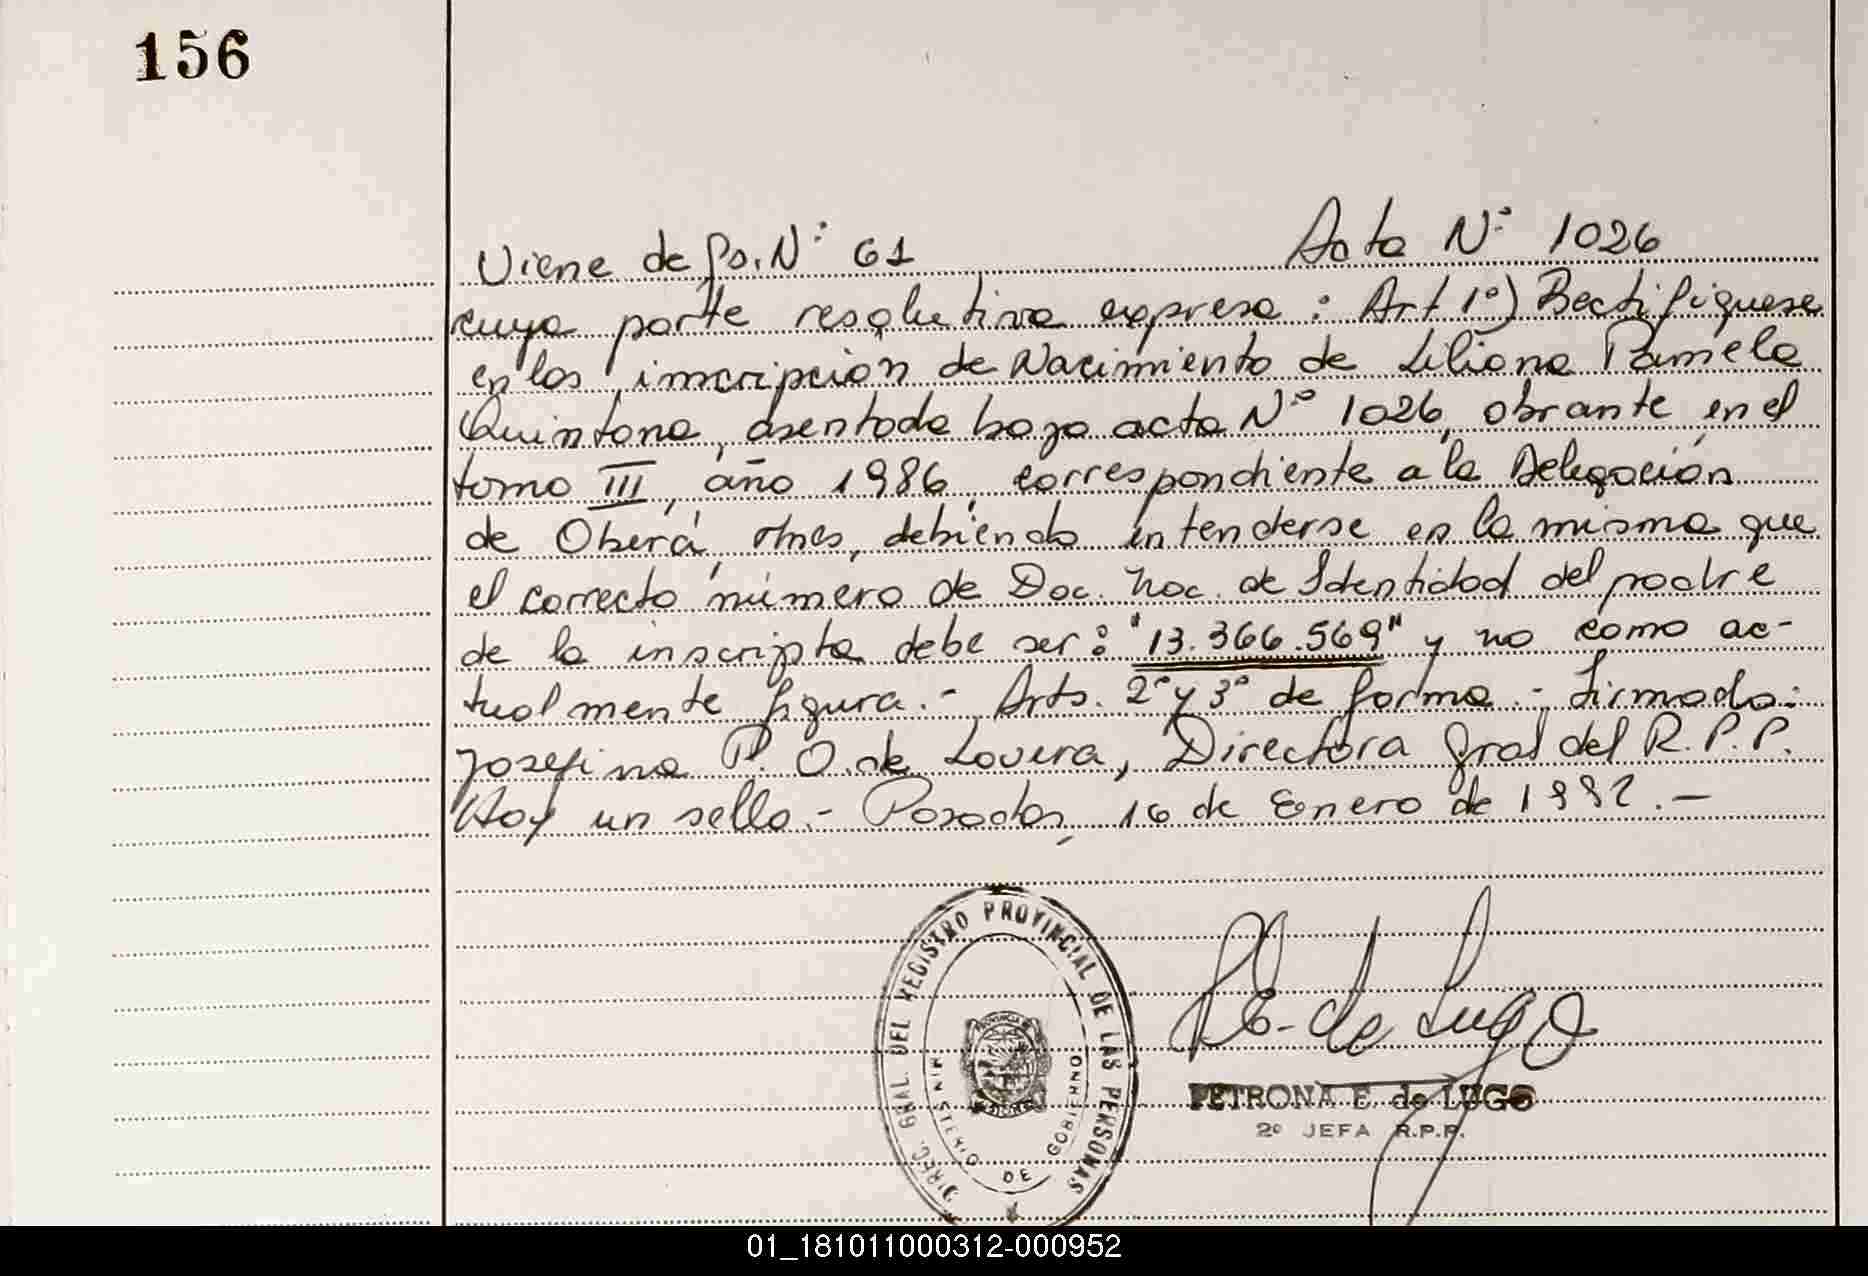 156
Viene de Fo. Nº 61 Acta Nº 1026
cuya parte resolutiva expresa: Art 1º) Rectifiquese
en las inscripción de Nacimiento de Liliana Pamela
Quintana, asentada bajo acta Nº 1026, obrante en el
tomo III, año 1986, correspondiente a la Delegación
de Oberá, Mnes, debiendo intenderse en la misma que
el correcto número de Doc. Nac. de Identidad del padre
de la inscripta debe ser: "13.366.569" y no como ac-
tualmente figura.- Arts. 2º y 3º de forma.- Firmado:
Josefina P. O. de Lovera, Directora Gral del R.P.P.
Hay un sello.- Posadas, 16 de Enero de 1992.-
DIREC. GRAL. DEL REGISTRO PROVINCIAL DE LAS PERSONAS
MINISTERIO DE GOBIERNO
PROVINCIA DE
MISIONES
P E. de Lugo
PETRONA E. de LUGO
2º JEFA R.P.P.
01_181011000312-000952